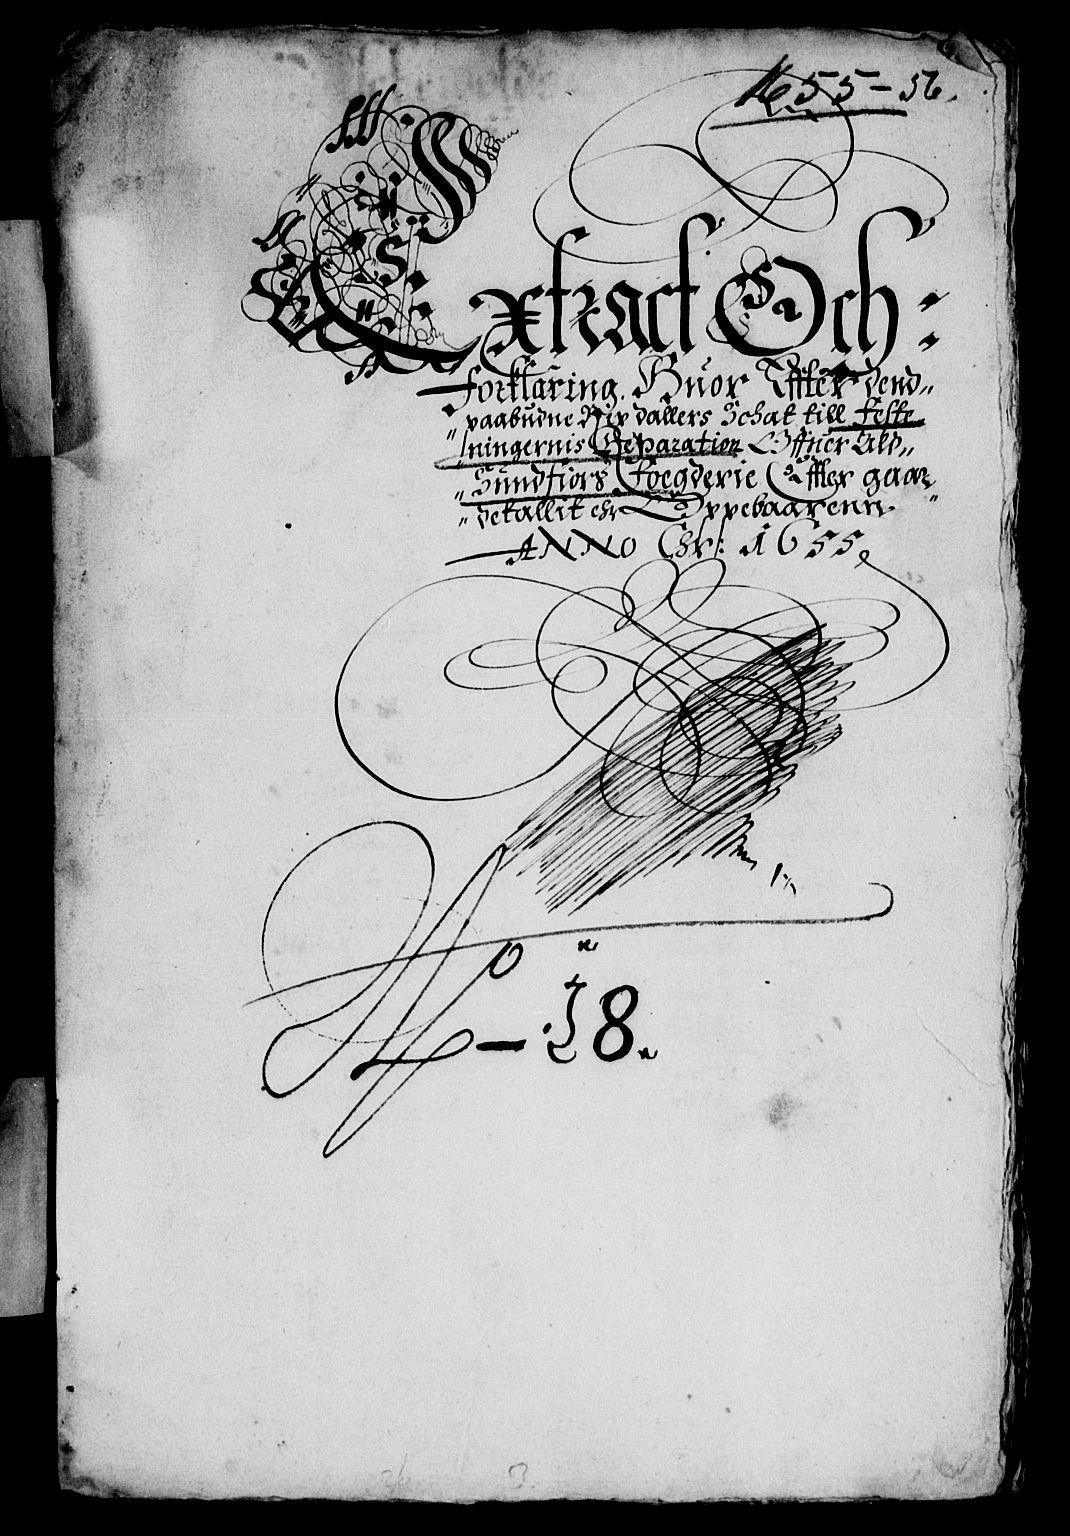 1655-56.
Extract Och:
forklaring. Huor Effter dend„
paabudne Rix dallers Schat till Feste„
„ningernis Reparation Offuer Ald„
„Sundfiors Foegderie Effter gaar„
„detallit ehr Oppebaarenn.
ANNO Chr: 1655.
No - 18.